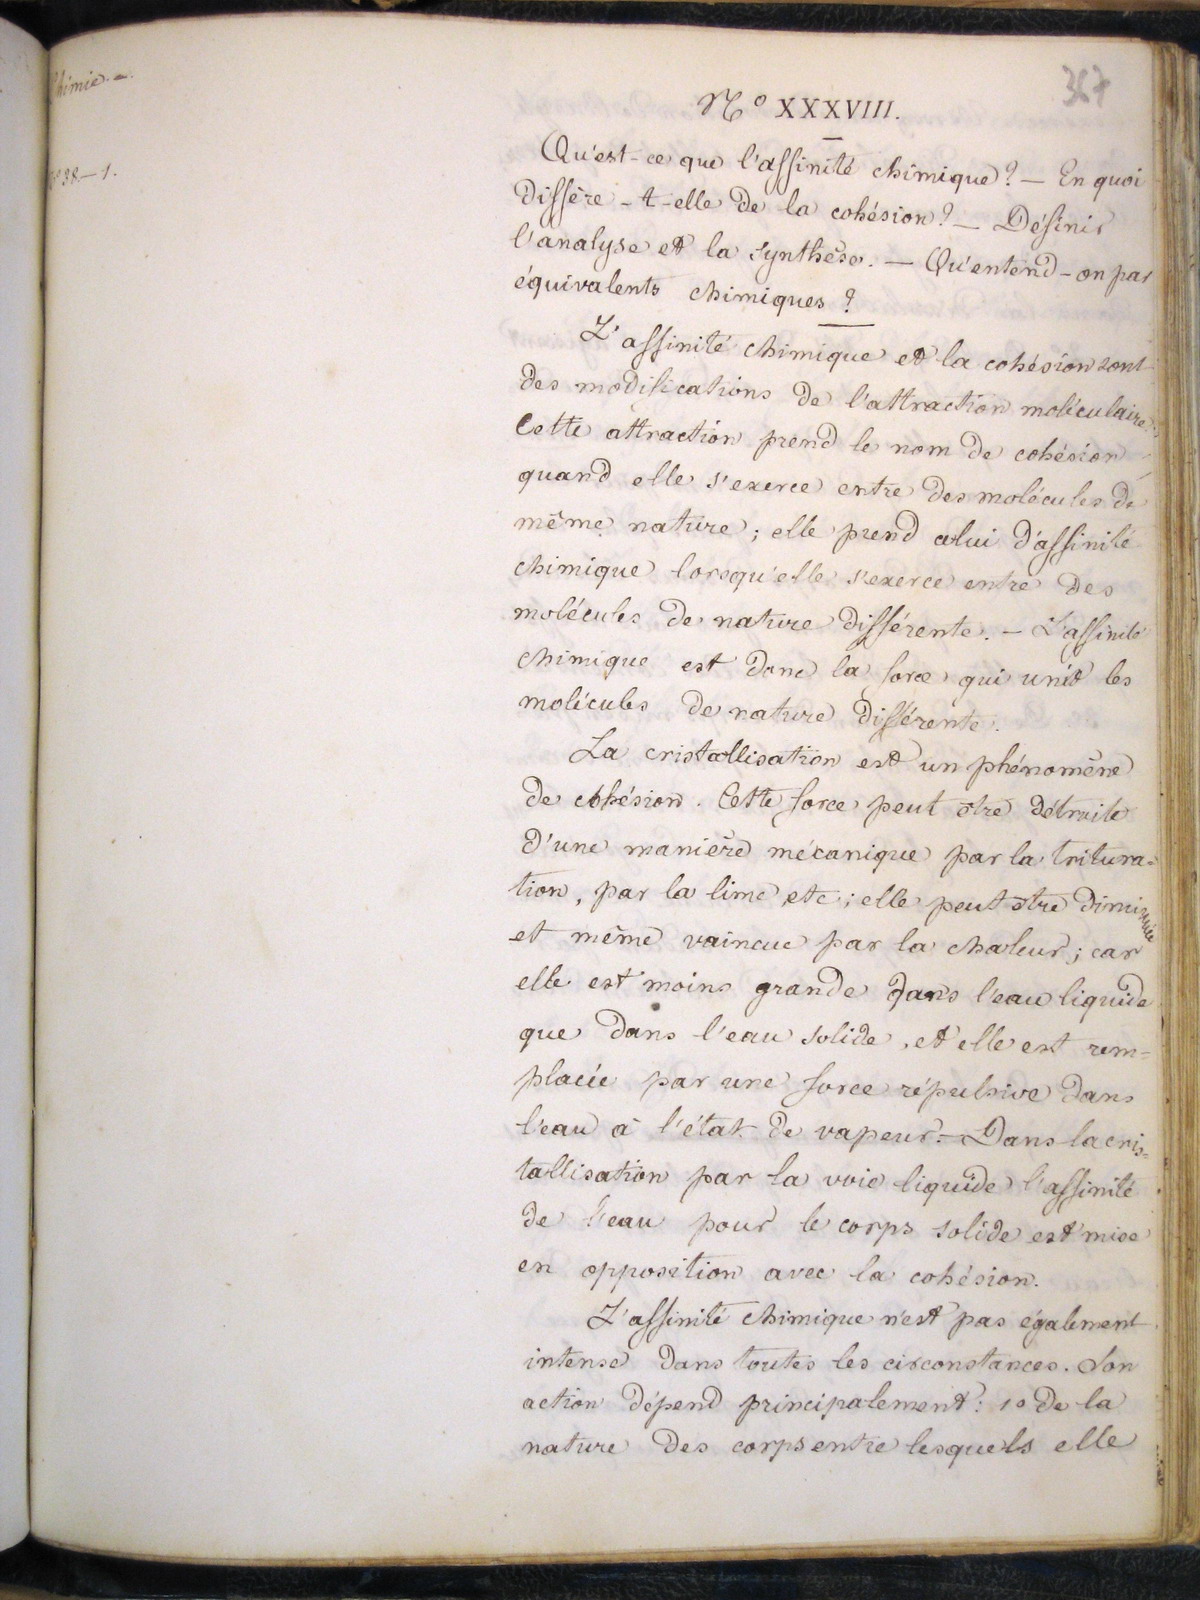 Chimie. –
367
No XXXVIII.
No 38. – 1.
Qu'est-ce que l'affinité chimique? — En quoi
diffère-t-elle de la cohésion? — Définir
l'analyse et la synthèse. — Qu'entend-on par
équivalents chimiques?
L'affinité chimique et la cohésion sont
des modifications de l'attraction moléculaire.
Cette attraction prend le nom de cohésion
quand elle s'exerce entre des molécules de
même nature; elle prend celui d'affinité
chimique lorsqu'elle s'exerce entre des
molécules de nature différente. — L'affinité
chimique est donc la force qui unit les
molécules de nature différente.
La cristallisation est un phénomène
de cohésion. Cette force peut être détruite
d'une manière mécanique par la tritura=
tion, par la lime, etc; elle peut être diminuée
et même vaincue par la chaleur; car
elle est moins grande dans l'eau liquide
que dans l'eau solide, et elle est rem=
placée par une force répulsive dans
l'eau à l'état de vapeur. — Dans la cris=
tallisation par la voie liquide l'affinité
de l'eau pour le corps solide est mise
en opposition avec la cohésion.
L'affinité chimique n'est pas également
intense dans toutes les circonstances. Son
action dépend principalement: 1o de la
nature des corps entre lesquels elle